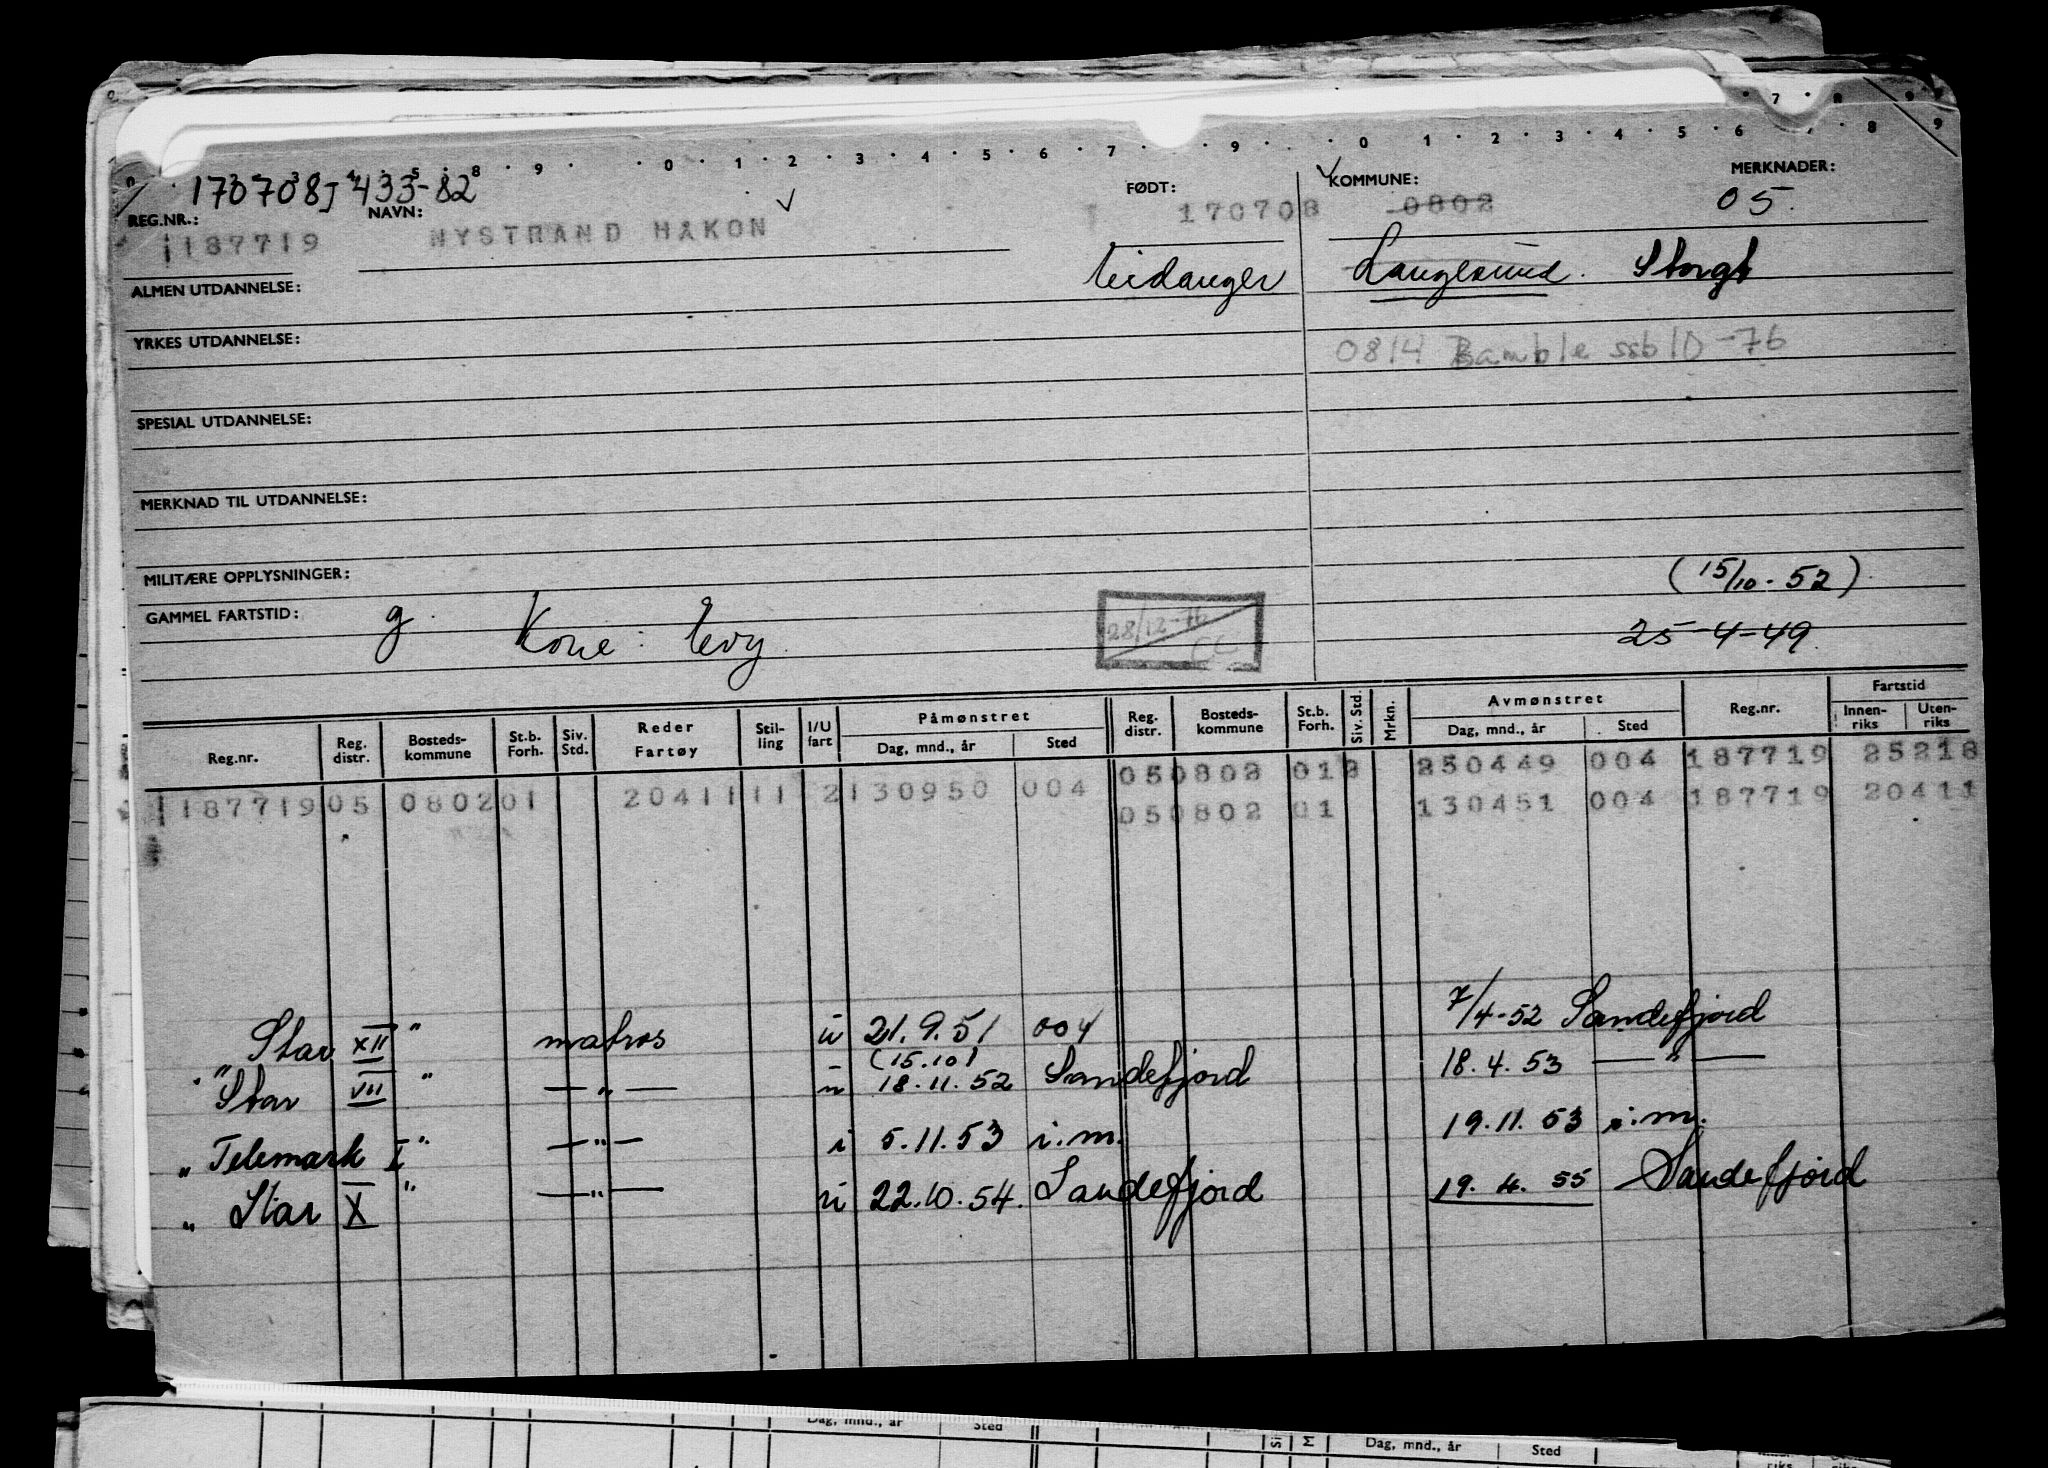 170708J 433-82
REG.NR.: NAVN: FØDT: KOMMUNE: MERKNADER:
187719 NYSTRAND HAKON 170708 0802 05.
ALMEN UTDANNELSE: Eidanger Langesund. Storgt
YRKES UTDANNELSE: 0814 Bamble ssb 10-76
SPESIAL UTDANNELSE:
MERKNAD TIL UTDANNELSE:
MILITÆRE OPPLYSNINGER: (15/10-52)
GAMMEL FARTSTID: g. Kone: Evy 28/12-76 25-4-49
Reg.nr. Reg. distr. Bosteds- kommune St.b. Forh. Siv. Std. Reder Fartøy Stil- ling I/U fart Påmønstret Dag, mnd., år Sted Reg. distr. Bosteds- kommune St.b. Forh. Siv. Std. Mrkn. Avmønstret Dag, mnd., år Sted Reg.nr. Fartstid Innen- riks Uten- riks
05 0802 01 2 250449 004 187719 25218
187719 05 0802 01 20411 11 2 130950 004 050802 01 130451 004 187719 20411
Star XII " matros u 21.9.51 004 7/4-52 Sandefjord
" Star VII " — " — u (15.10) 18.11.52 Sandefjord 18.4.53 — " —
" Telemark I " — " — i 5.11.53 i.m. 19.11.53 i.m.
" Star X " — " — u 22.10.54. Sandefjord 19.4.55 Sandefjord
Dag, mnd., år Sted Dag, mnd., år Sted